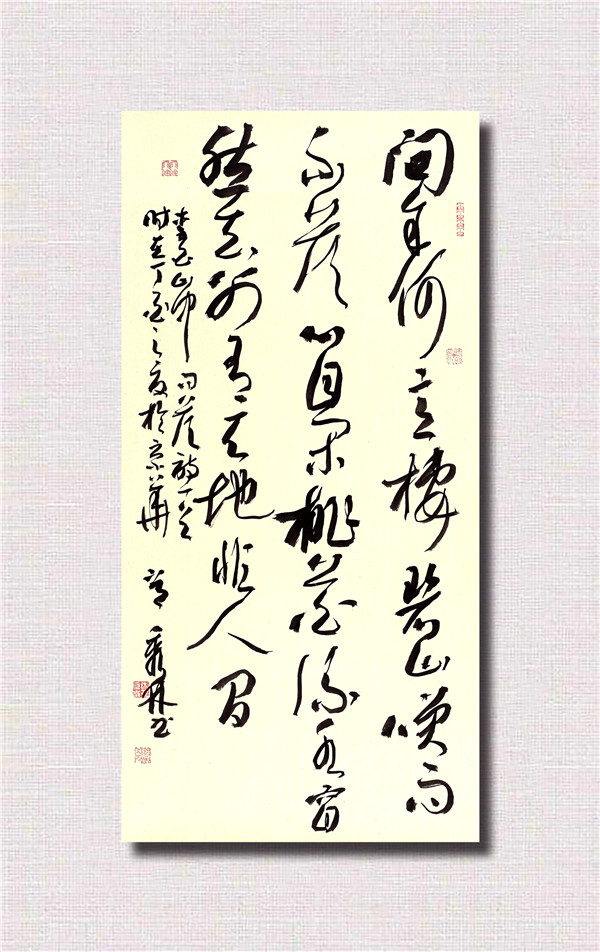 问余何意棲碧山笑而
不答心自闲桃花流水窅
然去别有天地非人间
李白山中问答诗一首
时在丁酉之夏於京華 秀林书